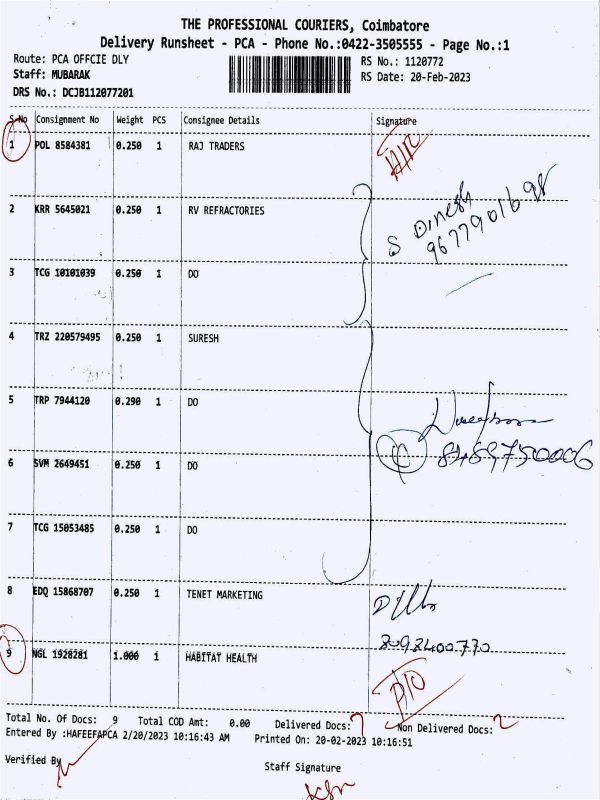 THE PROFESSIONAL COURIERS, Coimbatore
Delivery Runsheet - PCA - Phone No.:0422-3505555 - Page No.:1
Route: PCA OFFCIE DLY
RS No.: 1120772
Staff: MUBARAK
RS Date: 20-Feb-2023
DRS No.: DCJB112077201
S.No Consignment No Weight PCS Consignee Details Signature
1 POL 8584381 0.250 1 RAJ TRADERS
2 KRR 5645021 0.250 1 RV REFRACTORIES
S Dinesh
3 TCG 10101039 0.250 1 DO
4 TRZ 220579495 0.250 1 SURESH
5 TRP 7944120 0.290 1 DO
6 SVM 2649451 0.250 1 DO
7 TCG 15053485 0.250 1 DO
8 EDQ 15868707 0.250 1 TENET MARKETING
9 NGL 1928281 1.000 1 HABITAT HEALTH
Total No. Of Docs: 9 Total COD Amt: 0.00 Delivered Docs: 7 Non Delivered Docs: 2
Entered By :HAFEEFAPCA 2/20/2023 10:16:43 AM Printed On: 20-02-2023 10:16:51
Verified By
Staff Signature